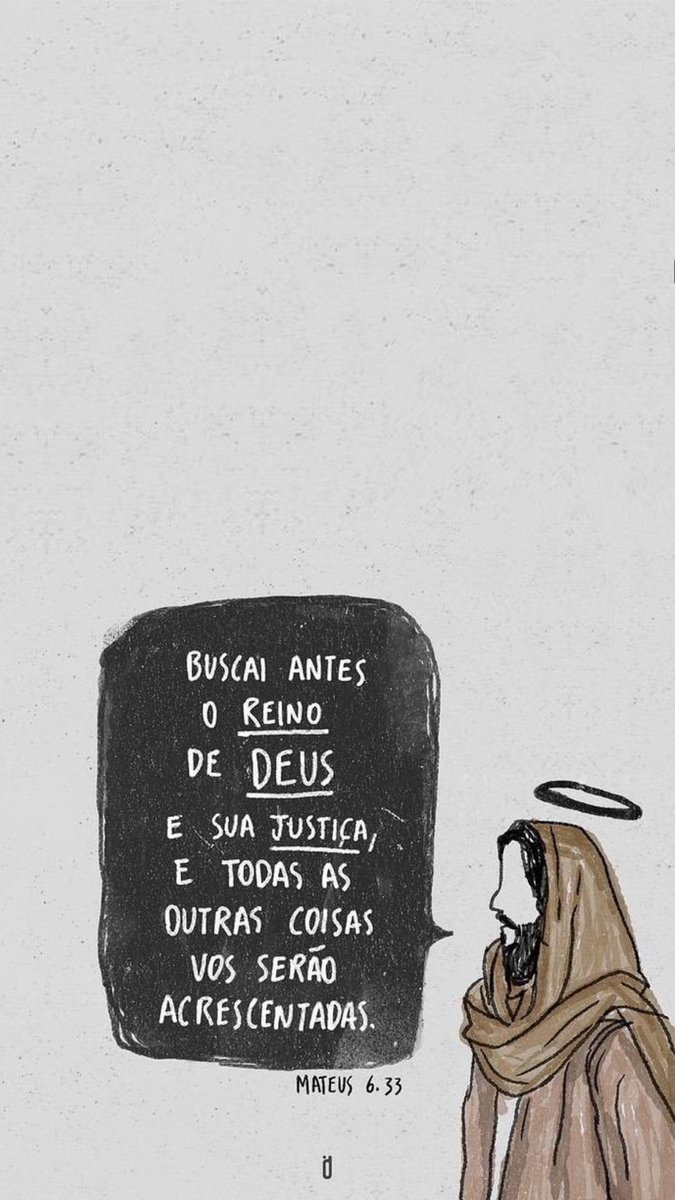 BUSCAI ANTES
O REINO
DE DEUS
E SUA JUSTIÇA,
E TODAS AS
OUTRAS COISAS
VOS SERÃO
ACRESCENTADAS.
MATEUS 6.33